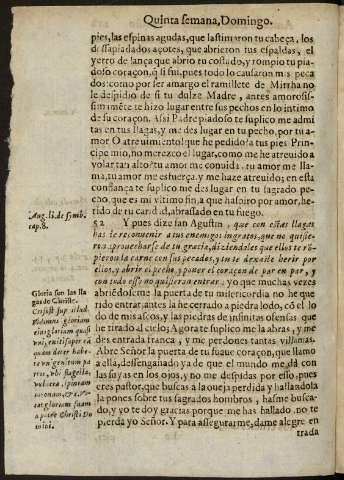 Quinta semana, Domingo.
pies, las espinas agudas, que lastimaron tu cabeça, los
desapiadados açotes, que abrieron tus espaldas, el
yerro de lança que abrio tu costado, y rompio tu pia-
doso coraçon, q̃ si fui, pues todo lo causaron mis peca
dos: como por ser amargo el ramillete de Mirrha no
le despidio de si tu dulze Madre, antes amorosis-
simamẽte te hizo lugar entre sus pechos en lo intimo
de su coraçon. Assi Padre piadoso te suplico me admi
tas en tus llagas, y me des lugar en tu pecho, por tu a-
mor. O atreuimiento! que he pedido? a tus pies Prin-
cipe mio, no merezco el lugar, como me he atreuido a
volar tan alto? tu amor me combida, tu amor me lla-
ma, tu amor me esfuerça, y me haze atreuido; en esta
confiança te suplico me des lugar en tu sagrado pe-
cho, que es mi vltimo fin, a que aspiro por amor, he-
rido de tu caridad, abrassado en tu fuego.
52 Y pues dize san Agustin, que con estas llagas
has de reconuenir a tus enemigos ingratos, que no quisie-
ron aprouecharse de tu gracia, diziendoles que ellos te rõ-
pieron la carne con sus pecados, y tu te dexaste herir por
ellos, y abrir el pecho, y poner el coraçon de par en par, y
con todo esso no quisieron entrar. yo que muchas vezes
abriẽdome tu la puerta de tu misericordia no he que
rido entrar, antes la he cerrado a piedra lodo, cõ el lo
do de mis ascos, y las piedras de infinitas ofensas que
he tirado al cielo; Agora te suplico me la abras, y me
des entrada franca, y me perdones tantas villanias.
Abre Señor la puerta de tu suaue coraçon, que llamo
a ella, dessengañado ya de que el mundo me dá con
las suyas en los ojos, y no me despidas por esso, pues
eres pastor, que buscas a la oueja perdida y hallandola
la pones sobre tus sagrados hombros, hasme busca-
do, y yo te doy gracias porque me has hallado. no te
pierda yo Señor. Y para assegurarme, dame alegre en
trada
Aug. li. de symb.
cap. 8.
Gloria son las lla
gas de Christo.
vni, enitisuper eã
quam deret habe-
re vnigenitum pa
tris, vbi flagella,
vulnera, sputum
coronam, & c.